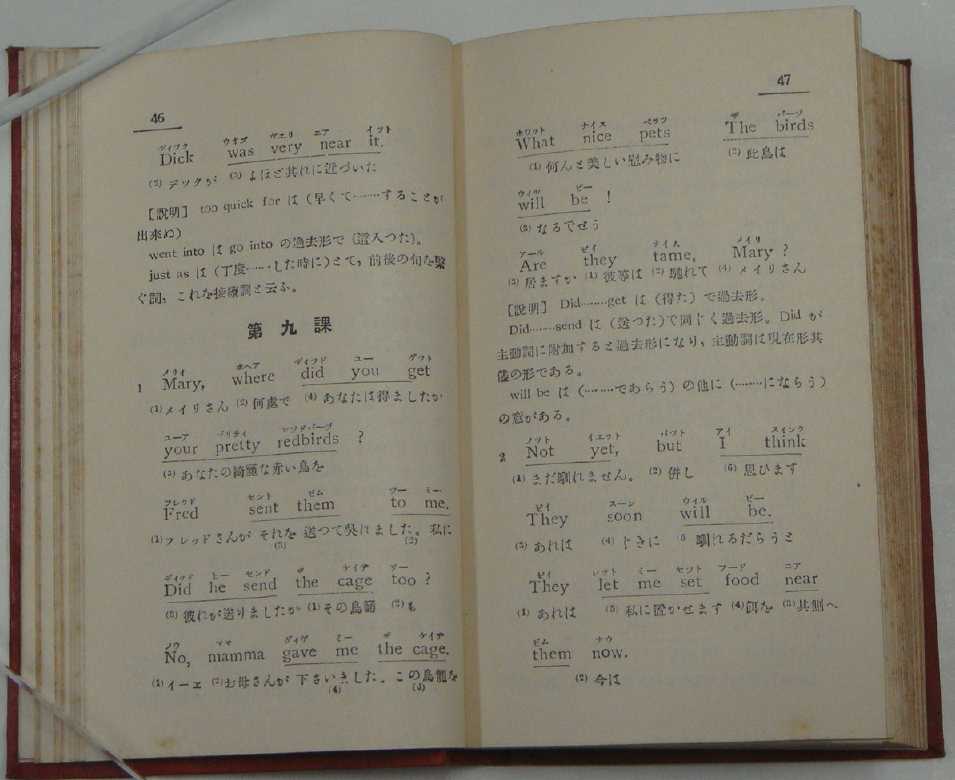 46
Dick was very near it.
(1) デックが (3) よほど其れに近づいた
【説明】 too quick for は (早くて……することが
出来ぬ)
went into は go into の過去形で (這入つた)。
just as は (丁度……した時に)とて, 前後の句を繫
ぐ詞, これを接續詞と云ふ。
第九課
メリイ ホヘア ディツド ユー ゲツト
1 Mary, where did you get
(1)メイリさん (2)何處で (4) あなたは得ましたか
ユーア プリティ レツドバーヅ
your pretty redbirds ?
(3) あなたの綺麗な赤い鳥を
フレツド セント ゼム ツー ミー
Fred sent them to me.
(1)フレッドさんが それを 送つて呉れました。 私に
(3) (2)
ディツド ヒー センド ザ ケイヂ ツー
Did he send the cage too ?
(3) 彼れが送りましたか (1)その鳥籠 (2)も
ノウ ママ ガイヴ ミー ザ ケイヂ
No, mamma gave me the cage.
(1)イーエ (2)お母さんが 下さいました。この鳥籠を
(4) (3)
47
ホワツト ナイス ペツツ ザ バーヅ
What nice pets The birds
(1) 何んと美しい慰み物に (2) 此鳥は
ウイル ビー
will be !
(3) なるでせう
アール ゼイ テイム メイリ
Are they tame, Mary ?
(3) 居ますか (1) 彼等は (2) 馴れて (4) メイリさん
【説明】 Did……get は (得た) で過去形.
Did……send は (送つた)で同じく過去形。Did が
主動詞に附加すると過去形になり, 主動詞は現在形其
儘の形である。
will be は (……であらう) の他に (……にならう)
の意がある。
ノツト イエツト バツト アイ スインク
2 Not yet, but I think
(1) まだ馴れません。 (2) 併し (6) 思ひます
ゼイ スーン ウイル ビー
They soon will be.
(3) あれは (4) ぢきに (5) 馴れるだらうと
ゼイ レツト ミー セツト フード, ニア
They let me set food near
(1) あれは (5) 私に置かせます (4)餌を (3)其側へ
ゼム ナウ
them now.
(2) 今は